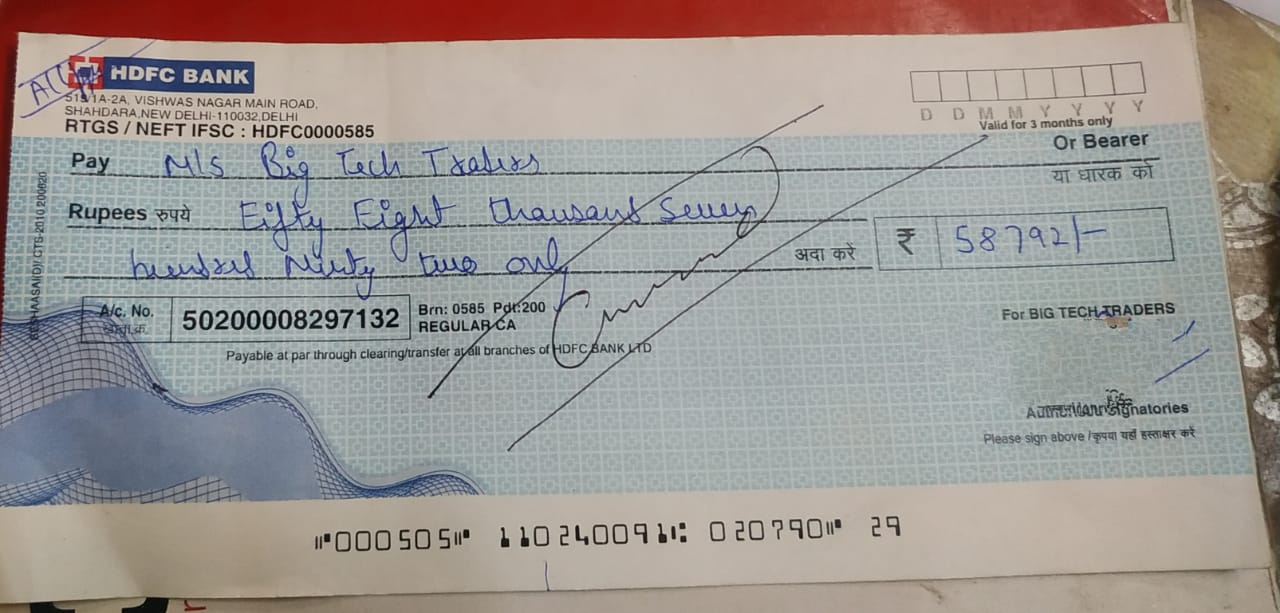 HDFC BANK
519/1A-2A, VISHWAS NAGAR MAIN ROAD,
SHAHDARA,NEW DELHI-110032,DELHI
RTGS / NEFT IFSC : HDFC0000585
D D M M Y Y Y Y
Valid for 3 months only
Pay M/s Big Tech Traders Or Bearer
या धारक को
Rupees रुपये Fifty Eight thousand Seven
hundred Ninty two only अदा करें ₹ 58792/-
A/c. No. 50200008297132 Brn: 0585 Pdt:200
REGULAR CA
Payable at par through clearing/transfer at all branches of HDFC BANK LTD
For BIG TECH TRADERS
Signatories
Please sign above /कृपया यहाँ हस्ताक्षर करें
CTS-2010
⑈000505⑈ 110240091⑆ 020790⑈ 29